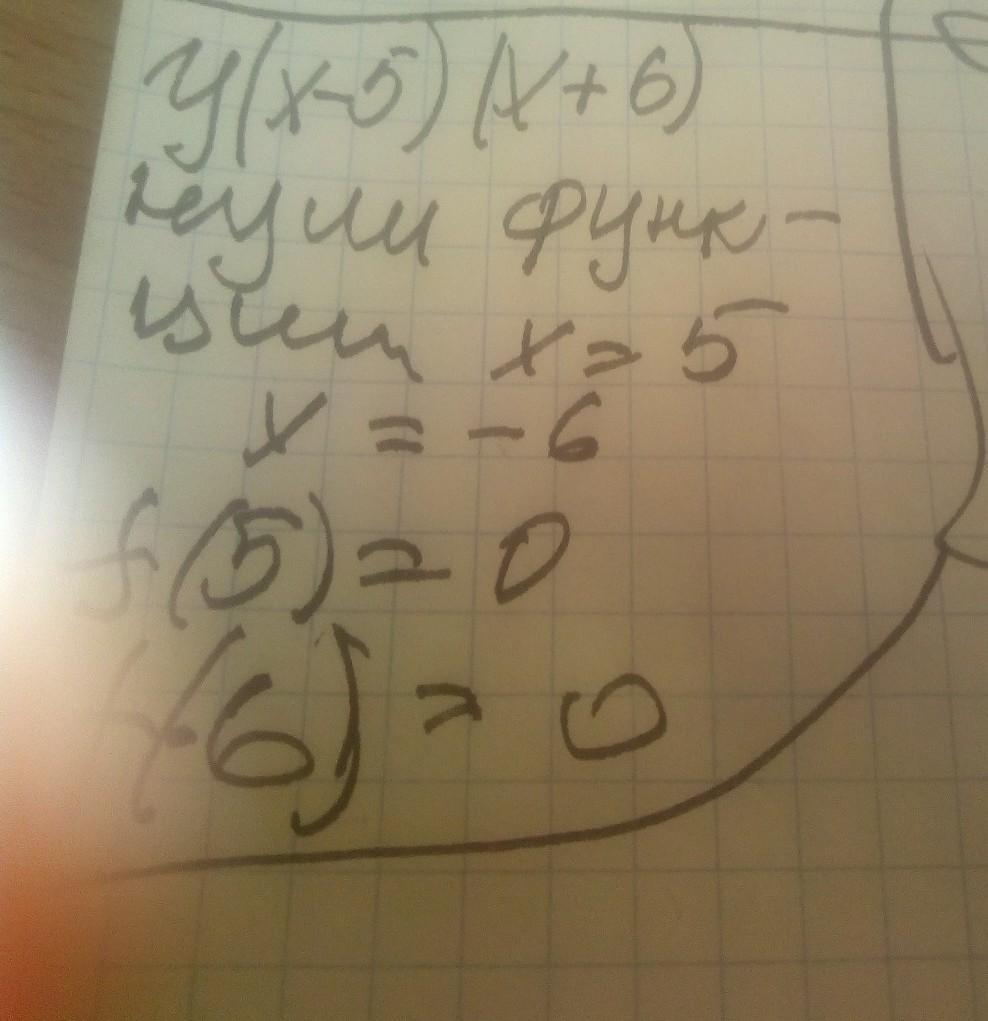 y(x-5)(x+6)
нули функ-
ции x=5
x = -6
f(5)=0
f(-6)=0